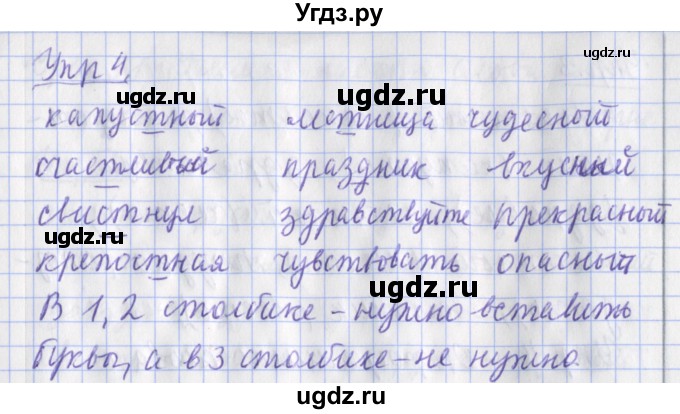 Угдз.ру
ugdz.ru
ugdz.ru
Упр 4.
ugdz.ru
капустный лестница чудесный
ugdz.ru
счастливый праздник вкусный
свистнул здравствуйте прекрасный
ugdz.ru ugdz.ru
крепостная чувствовать опасный
ugdz.ru
В 1, 2 столбике – нужно вставить
буквы, а в 3 столбике – не нужно.
ugdz.ru ugdz.ru